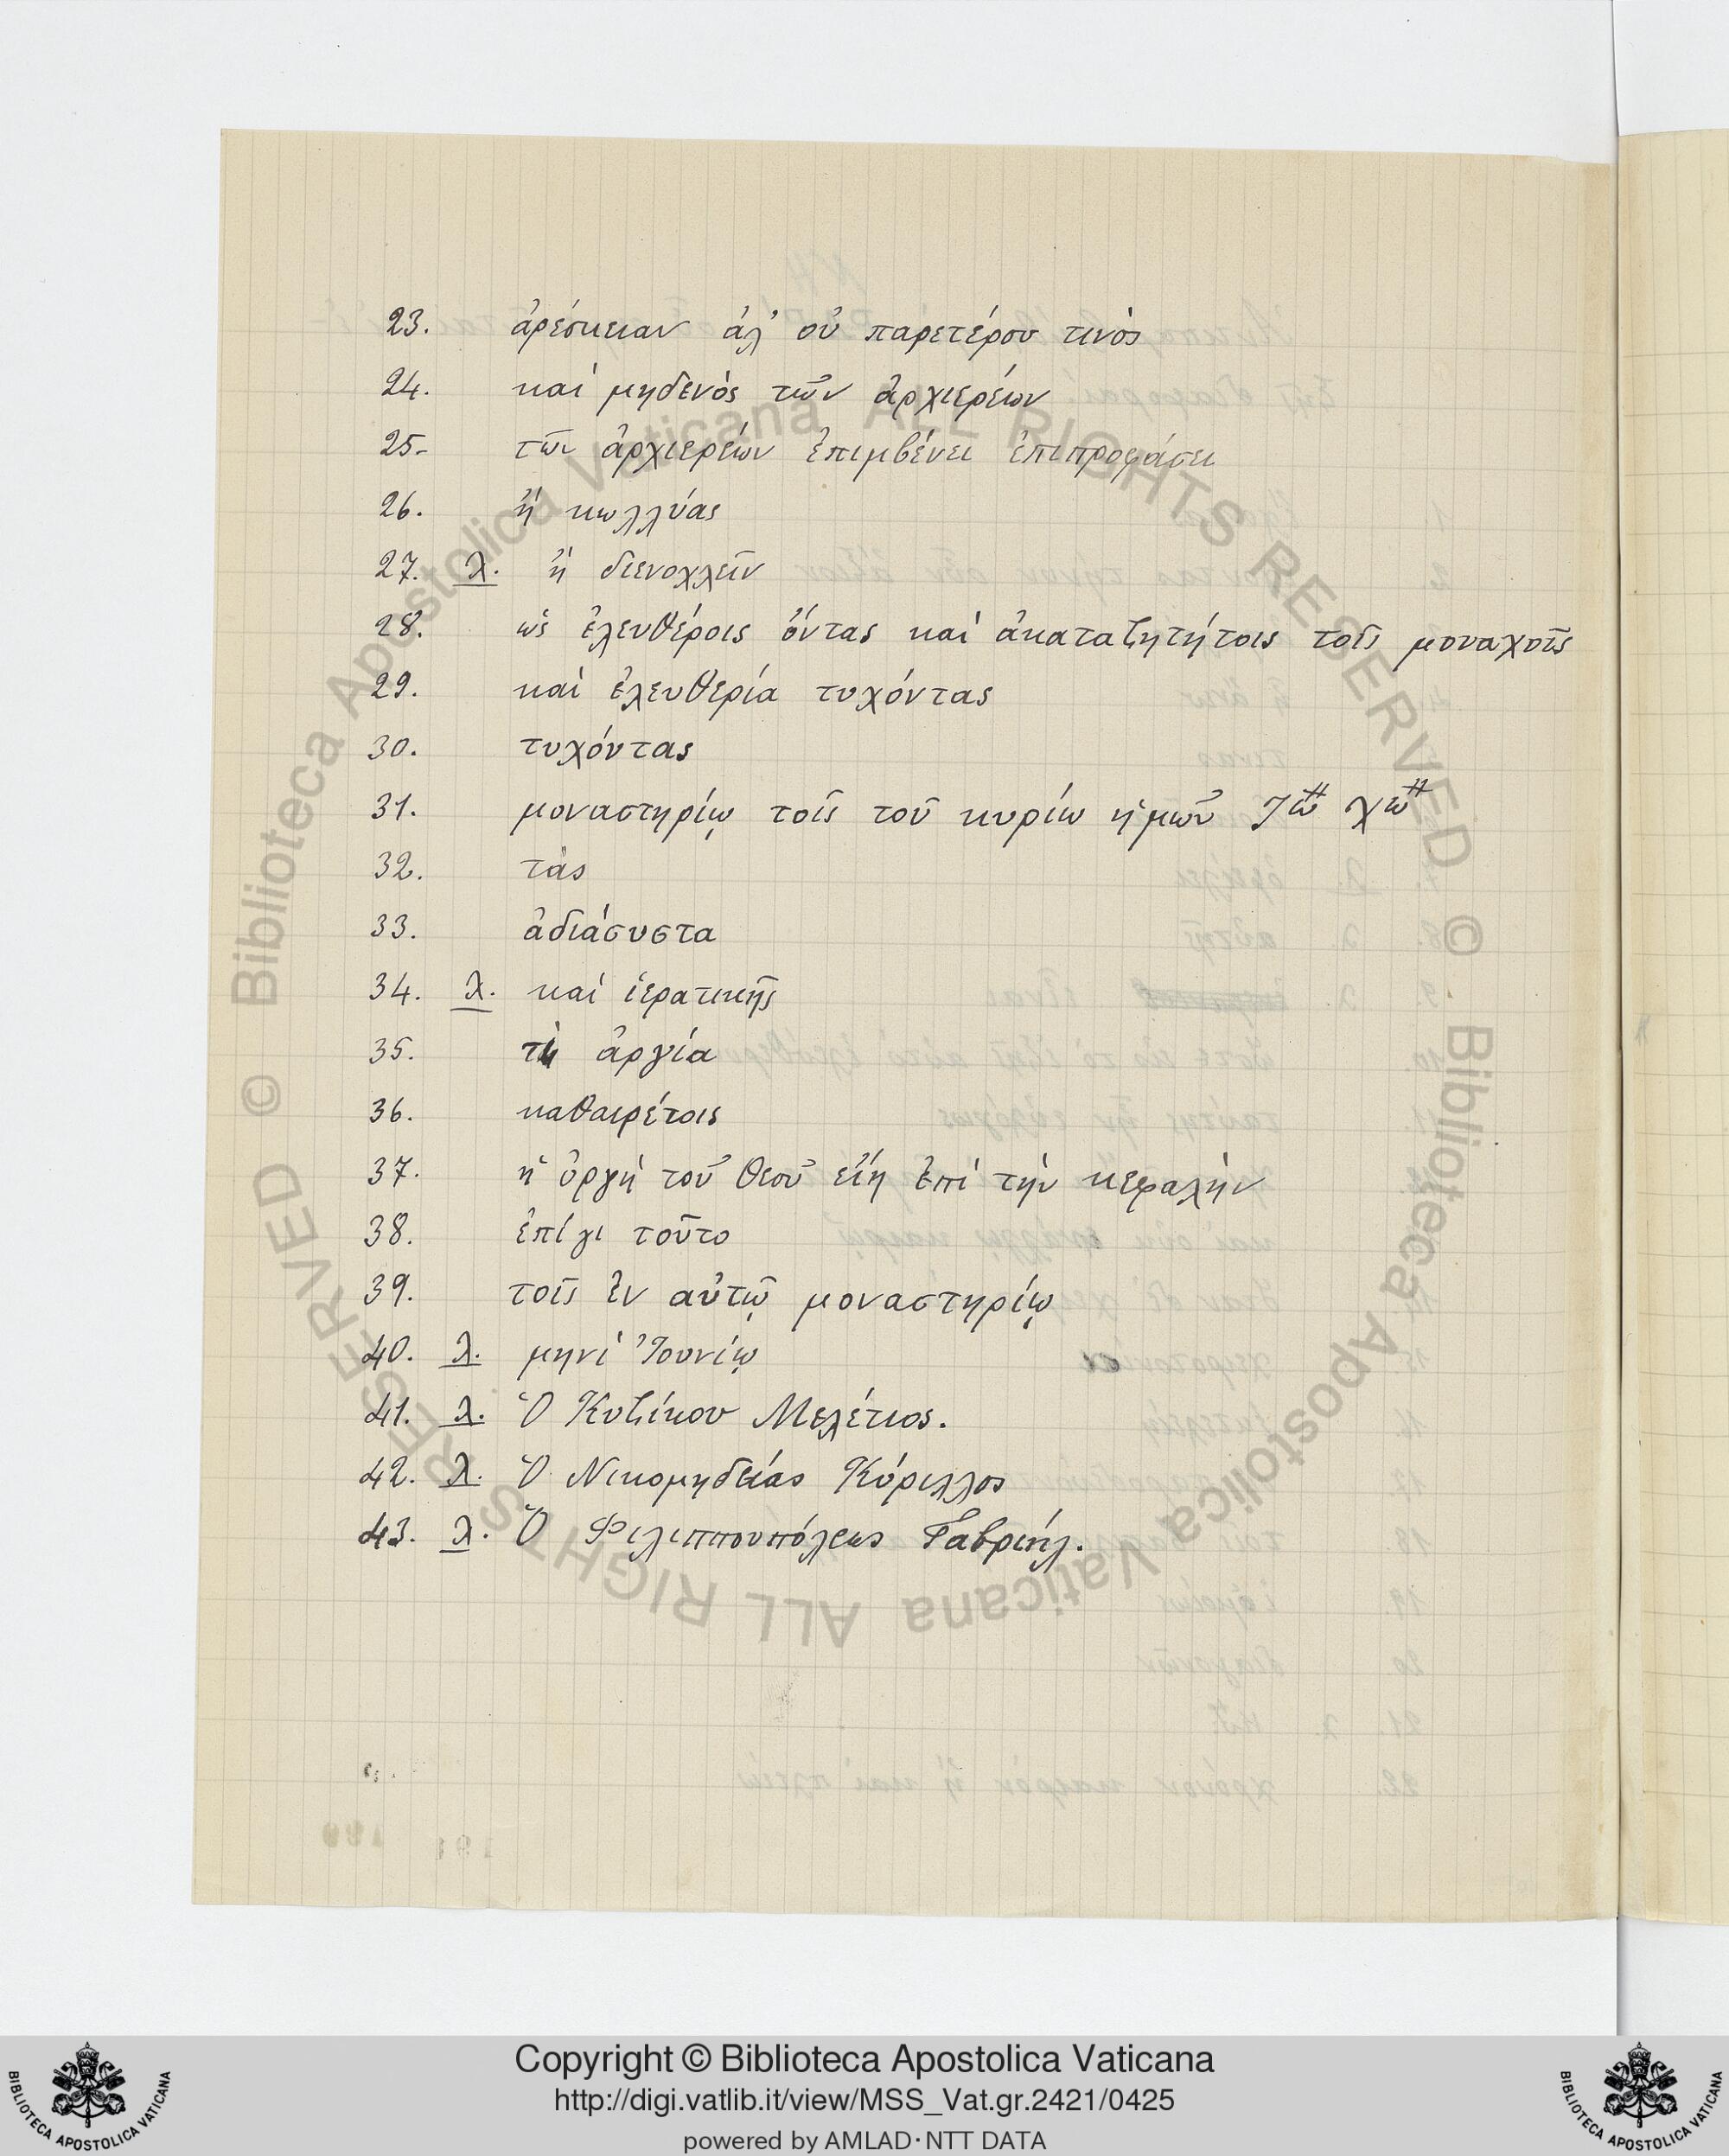 23. ἀρέσκειαν ἀλ' οὐ παρετέρου τινὸς
24. καὶ μηδενὸς τῶν ἀρχιερέων
25. τῶν ἀρχιερέων ἐπιμβένει ἐπιπροφάσει
26. ἢ κωλλύας
27. λ. ἢ διενοχλεῖν
28. ὡς ἐλευθέροις ὄντας καὶ ἀκαταζητήτοις τοῖς μοναχοῖς
29. καὶ ἐλευθερία τυχόντας
30. τυχόντας
31. μοναστηρίῳ τοῖς τοῦ κυρίω ἡμῶν
32. τὰς
33. ἀδιάσυστα
34. λ. καὶ ἱερατικῆς
35. τὴ ἀργία
36. καθαιρέτοις
37. ἡ ὀργὴ τοῦ Θεοῦ εἴη ἐπὶ τὴν κεφαλὴν
38. ἐπίγι τοῦτο
39. τοῖς ἐν αὐτῷ μοναστηρίῳ
40. λ. μηνὶ Ἰουνίῳ
41. λ. Ὁ Κυζίκου Μελέτιος.
42. λ. Ὁ Νικομηδείας Κύριλλος
43. λ. Ὁ Φιλιππουπόλεως Γαβριήλ.
© Biblioteca Apostolica Vaticana ALL RIGHTS RESERVED © Biblioteca Apostolica Vaticana ALL RIGHTS RESERVED
Copyright © Biblioteca Apostolica Vaticana
http://digi.vatlib.it/view/MSS_Vat.gr.2421/0425
powered by AMLAD·NTT DATA
BIBLIOTECA APOSTOLICA VATICANA
BIBLIOTECA APOSTOLICA VATICANA